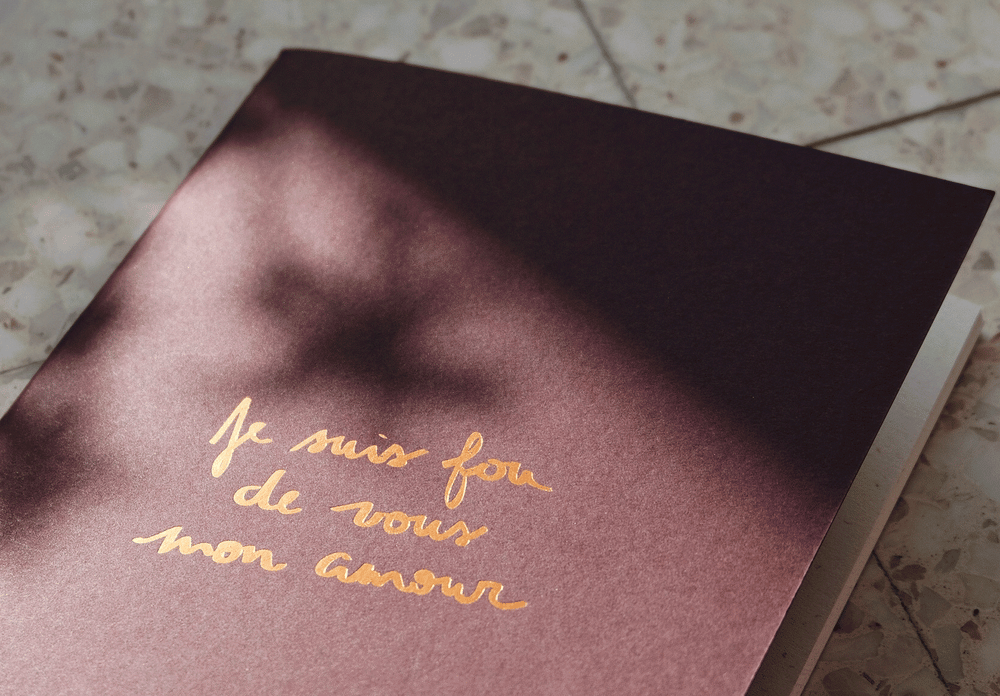 Je suis fou
de vous
mon amour